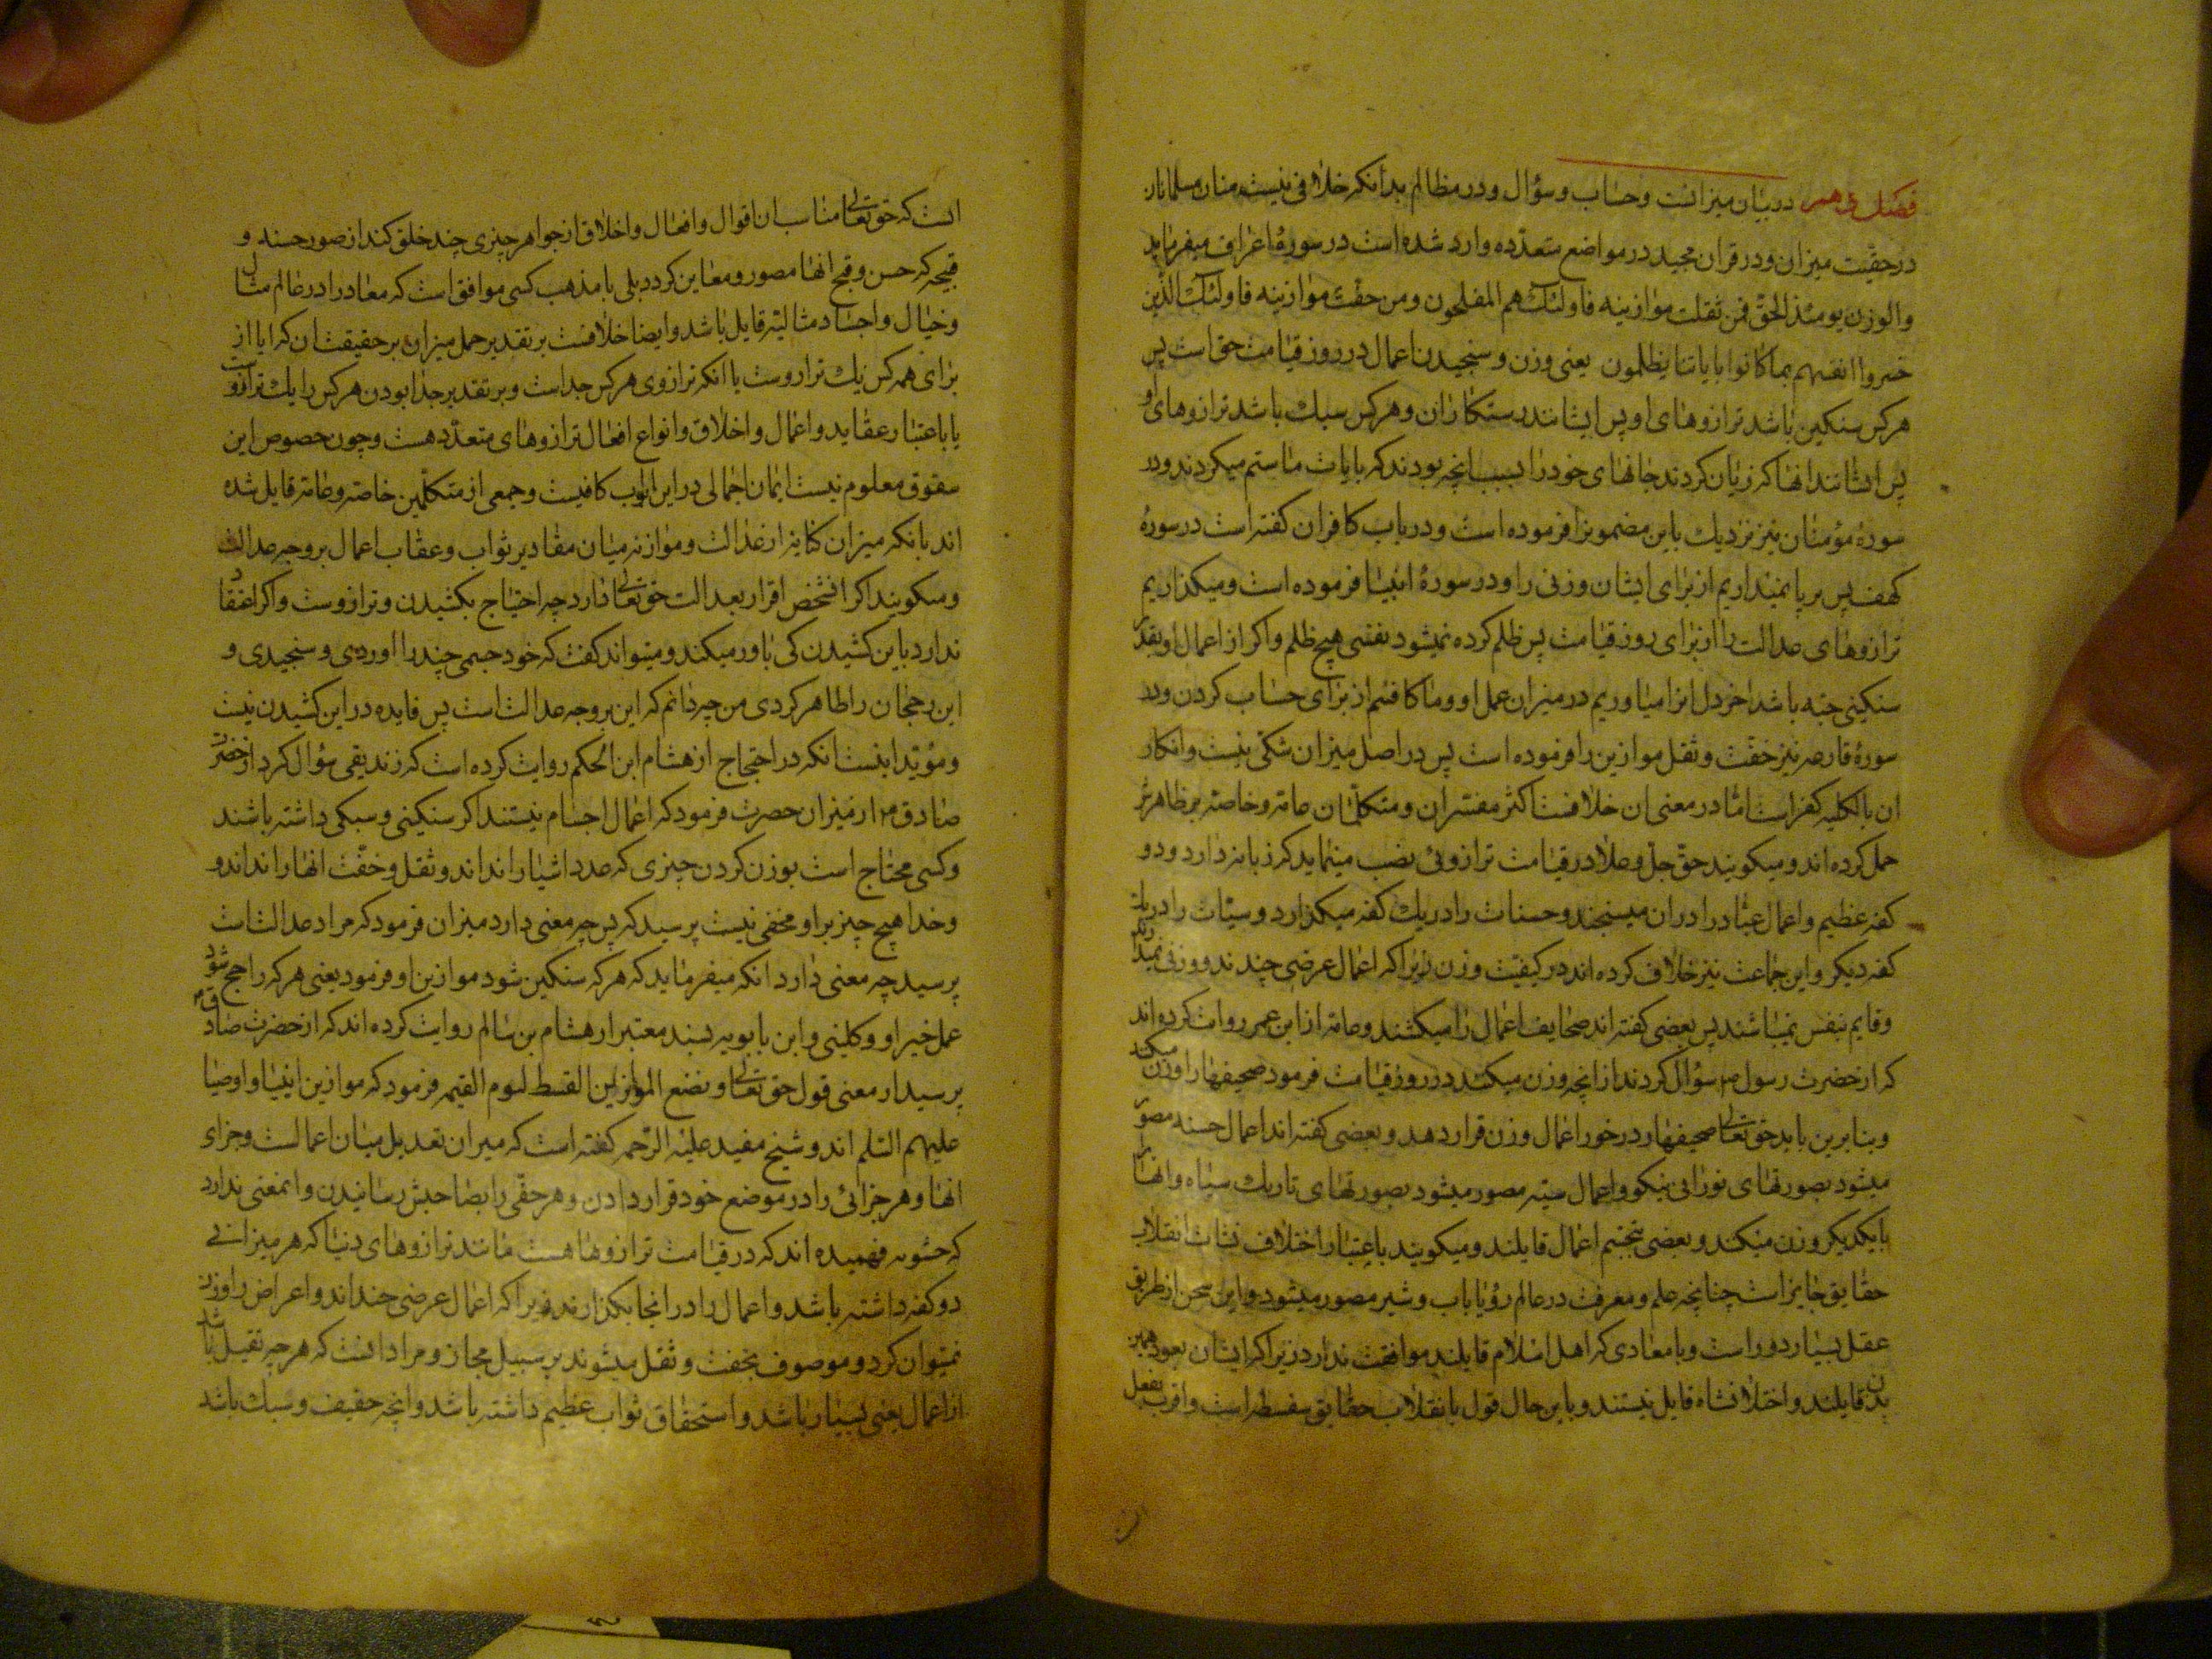 فصل دهم در بیان میزانست وحساب وسؤال ودر مظالم بدانکه خلافی نیست میان مسلمانان
در حقیت میزان ودر قران مجید در مواضع متعدّده وارد شده است در سورهٔ اعراف میفرماید
والوزن یومئذ الحقّ فمن ثقلت موازینه فاولئک هم المفلحون ومن خفّت موازینه فاولئک الّذین
خسروا انفسهم بما کانوا بایاتنا یظلمون یعنی وزن وسنجیدن اعمال در روز قیامت حق است پس
هر کس سنکین باشد ترازوهای او پس ایشانند رستکاران وهر کس سبک باشد ترازوهای او
پس ایشانند انها که زیان کردند جانهای خود را بسبب انچه بودند که بایات ما ستم میکردند ودر
سورهٔ مؤمنان نیز نزدیک باین مضمونرا فرموده است ودر باب کافران کفته است در سورهٔ
کهف پس بر پا نمیداریم از برای ایشان وزنی را ودر سورهٔ انبیا فرموده است ومیکذاریم
ترازوهای عدالت را از برای روز قیامت پس ظلم کرده نمیشود نفسی هیچ ظلم واکر از اعمال او بقدر
سنکینی حبّه باشد از خردل انرا میاوریم در میزان عمل او وما کافئیم از برای حساب کردن ودر
سورهٔ قارعه نیز خفّت وثقل موازین را فرموده است پس در اصل میزان شکّی نیست وانکار
ان بالکلیه کفر است امّا در معنی ان خلافست اکثر مفسّران ومتکلّمان عامّه وخاصّه بر ظاهرش
حمل کرده اند ومیکویند حقّ جلّ وعلا در قیامت ترازوئی نصب مینماید که زبانه دارد ودو
کفه عظیم واعمال عباد را در ان میسنجند وحسنات را در یک کفه میکذارد وسیّئات را در یک
کفه دیکر واین جماعت نیز خلاف کرده اند در کیفیّت وزن زیرا که اعمال عرضی چند ند ووزنی نمیدارند
وقایم بنفس نمیباشند پس بعضی کفته اند صحایف اعمال را میکشند وعامّه از ابن عمر روایت کرده اند
که از حضرت رسول ص سؤال کردند از انچه وزن میکنند در روز قیامت فرمود صحیفها را وزن میکنند
وبنابرین باید حق تعالی صحیفها را در خور اعمال وزن قرار دهد وبعضی کفته اند اعمال حسنه مصوّر
میشود بصورتهای نورانی نیکو واعمال سیّئه مصور میشود بصورتهای تاریک سیاه وانها را
با یکدیکر وزن میکنند وبعضی بتجسّم اعمال قایلند ومیکویند باعتبار اختلاف نشات انقلاب
حقایق جایز است چنانچه علم ومعرفت در عالم رؤیا باب وشیر مصور میشود واین سخن از طریق
عقل بسیار دور است وبا معادی که اهل اسلام قایلند موافقت ندارد زیرا که ایشان بعود همین
بدن قایلند واختلاف نشاه قایل نیستند وباین حال قول بانقلاب حقایق سفسطه است واقرب بعقل
انست که حق تعالی مناسب ان اقوال وافعال واخلاق از جواهر چیزی چند خلق کند از صور حسنه و
قبیحه که حسن وقبح انها مصور ومعاین کردد بلی با مذهب کسی موافق است که معاد را در عالم مثال
وخیال واجساد مثالیّه قایل باشد وایضا خلافست بر تقدیر حمل میزان بر حقیقت ان که ایا از
برای همه کس یک ترازوست یا انکه ترازوی هر کس جداست وبر تقدیر جدا بودن هر کس را یک ترازوست
یا باعتبار عقاید واعمال واخلاق وانواع افعال ترازوهای متعدّد هست وچون خصوص این
شقوق معلوم نیست ایمان اجمالی در این ابواب کافیست وجمعی از متکلّمین خاصّه وعامّه قایل شده
اند بانکه میزان کنایه از عدالت وموازنه میان مقادیر ثواب وعقاب اعمال بر وجه عدالت
ومیکویند اکر انشخص اقرار بعدالت حق تعالی دارد چه احتیاج بکشیدن وترازوست واکر اعتقاد
ندارد باین کشیدن کی باور میکند ومیتواند کفت که خود جسمی چند را اوردی وسنجیدی و
این رجحان را ظاهر کردی من چه دانم که این بر وجه عدالت است پس فایده در این کشیدن نیست
ومؤیّد اینست انکه در احتجاج از هشام ابن الحکم روایت کرده است که زندیقی سؤال کرد از حضرت
صادق ع از میزان حضرت فرمود که اعمال اجسام نیستند اکر سنکینی وسبکی داشته باشند
وکسی محتاج است بوزن کردن چیزی که عدد اشیا را نداند وثقل وخفّت انها را نداند و
وخدا هیچ چیز بر او مخفی نیست پرسید که پس چه معنی دارد میزان فرمود که مراد عدالت است
پرسید چه معنی دارد انکه میفرماید که هر که سنکین شود موازین او فرمود یعنی هر که راجح شود
عمل خیر او وکلینی وابن بابویه بسند معتبر از هشام بن سالم روایت کرده اند که از حضرت صادق ع
پرسید از معنی قول حق تعالی ونضع الموازین القسط لیوم القیمه فرمود که موازین انبیا واوصیا
علیهم السّلم اند وشیخ مفید علیه الرّحمه کفته است که میزان تعدیل میان اعمالست وجزای
انها وهر جزائی را در موضع خود قرار دادن وهر حقّی را بصاحبش رسانیدن وانمعنی ندارد
که حشویه فهمیده اند که در قیامت ترازوها هست مانند ترازوهای دنیا که هر میزانی
دو کفه داشته باشد واعمال را در انجا بکذارند زیرا که اعمال عرضی چند اند واعراض را وزن
نمیتوان کرد وموصوف بخفت وثقل میشوند بر سبیل مجاز ومراد انست که هر چه ثقیل باشد
از اعمال یعنی بسیار باشد واستحقاق ثواب عظیم داشته باشد وانچه خفیف وسبک باشد